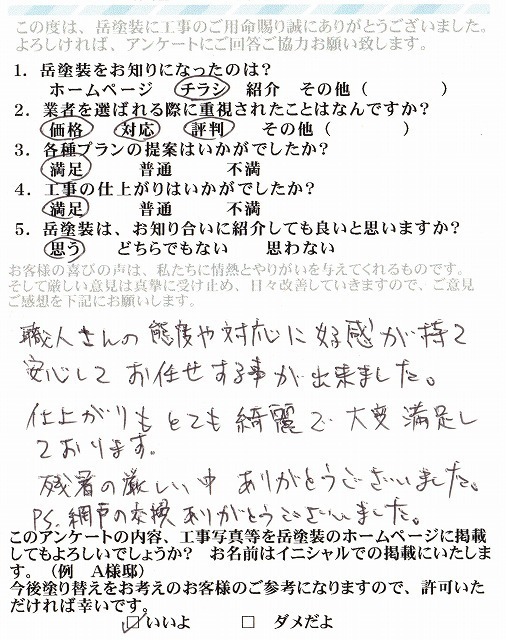 この度は、岳塗装に工事のご用命賜り誠にありがとうございました。
よろしければ、アンケートにご回答ご協力お願い致します。
1．岳塗装をお知りになったのは？
ホームページ　チラシ　紹介　その他（　　　　）
2．業者を選ばれる際に重視されたことはなんですか？
価格　対応　評判　その他（　　　　）
3．各種プランの提案はいかがでしたか？
満足　普通　不満
4．工事の仕上がりはいかがでしたか？
満足　普通　不満
5．岳塗装は、お知り合いに紹介しても良いと思いますか？
思う　どちらでもない　思わない
お客様の喜びの声は、私たちに情熱とやりがいを与えてくれるものです。
そして厳しい意見は真摯に受け止め、日々改善していきますので、ご意見
ご感想を下記にお願いします。
職人さんの態度や対応に好感が持て
安心してお任せする事が出来ました。
仕上がりもとても綺麗で大変満足し
ております。
残暑の厳しい中ありがとうございました。
PS.網戸の交換ありがとうございました。
このアンケートの内容、工事写真等を岳塗装のホームページに掲載
してもよろしいでしょうか？　お名前はイニシャルでの掲載にいたしま
す。（例　A様邸）
今後塗り替えをお考えのお客様のご参考になりますので、許可いた
だければ幸いです。
☑いいよ　□ダメだよ